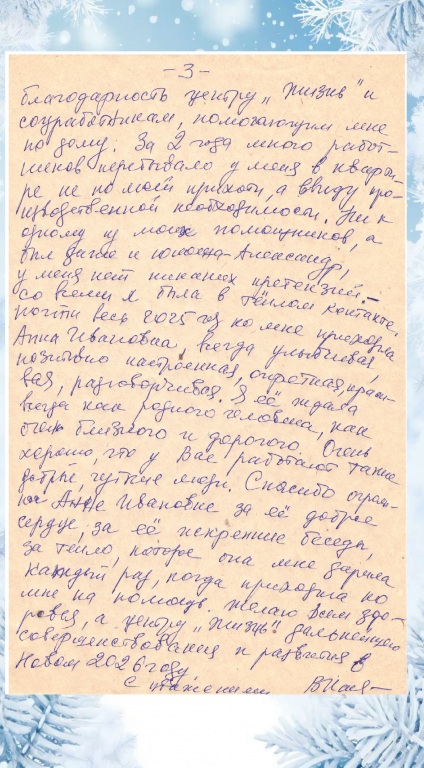 -3-
благодарность центру „Жизнь" и
соцработникам, помогающим мне
по дому. За 2 года много работ-
ников перебывало у меня в кварти-
ре не по моей прихоти, а ввиду про-
изводственной необходимости. Ни к
одному из моих помощников, а
был даже и юноша-Александр,
у меня нет никаких претензий-
со всеми я была в тёплом контакте.
Почти весь 2025 год ко мне приходила
Анна Ивановна всегда улыбчивая,
позитивно настроенная, опрятная, краси-
вая, разговорчивая. Я её ждала
всегда как родного человека, как
очень близкого и дорогого. Очень
хорошо, что у Вас работают такие
добрые, чуткие люди. Спасибо огром-
ное Анне Ивановне за её доброе
сердце, за её искренние беседы,
за тепло, которое она мне дарила
каждый раз, когда приходила ко
мне на помощь. Желаю всем здо-
ровья, а центру „Жизнь" дальнейшего
совершенствования и развития в
Новом 2026 году
С уважением